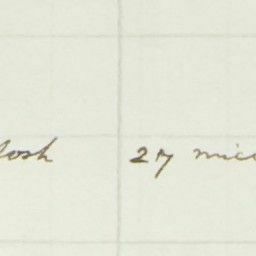 losh 27 mice